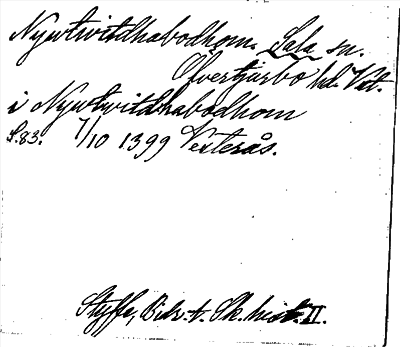 Nywtwitdhabodhom. Sala sn.
Öfvertjurbo hd. Vstl.
i Nywtwitdhabodhom
S. 83. 7/10 1399 Vesterås.
Styffe, Bidr. t. Sk. hist. II.